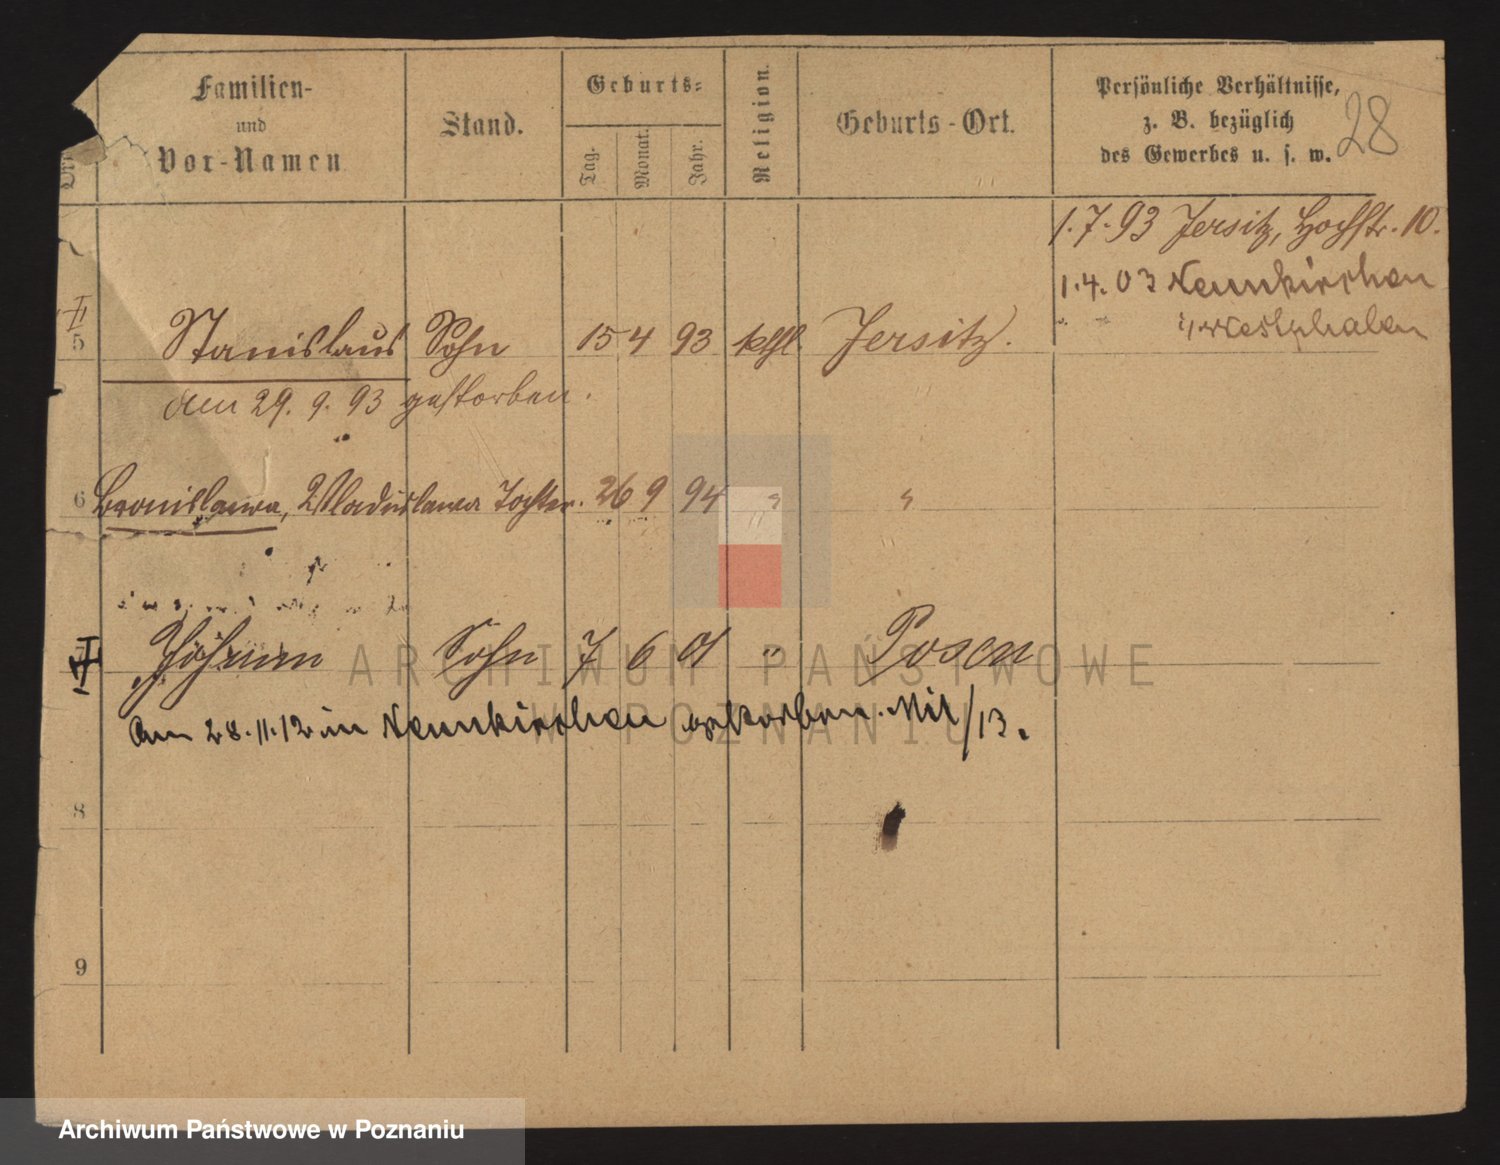 Familien-
und
Vor-Namen
Stand.
Geburts-
Tag.
Monat.
Jahr.
Religion.
Geburts-Ort.
Persönliche Verhältnisse,
z. B. bezüglich
des Gewerbes u. s. w.
28
1.7.93 Jersitz, Hochstr. 10.
1.4.03 Neunkirchen
i/Westphalen
5 Stanislaus Sohn 15 4 93 kthl. Jersitz.
Am 29. 9. 93 gestorben.
6 Bronislawa, Wladislawa Tochter. 26 9 94 " "
Sohn 7 6 01 " Posen
Am 28.11.12 in Neunkirchen gestorben. Mil/13.
8
9
ARCHIWUM PAŃSTWOWE
W POZNANIU
Archiwum Państwowe w Poznaniu